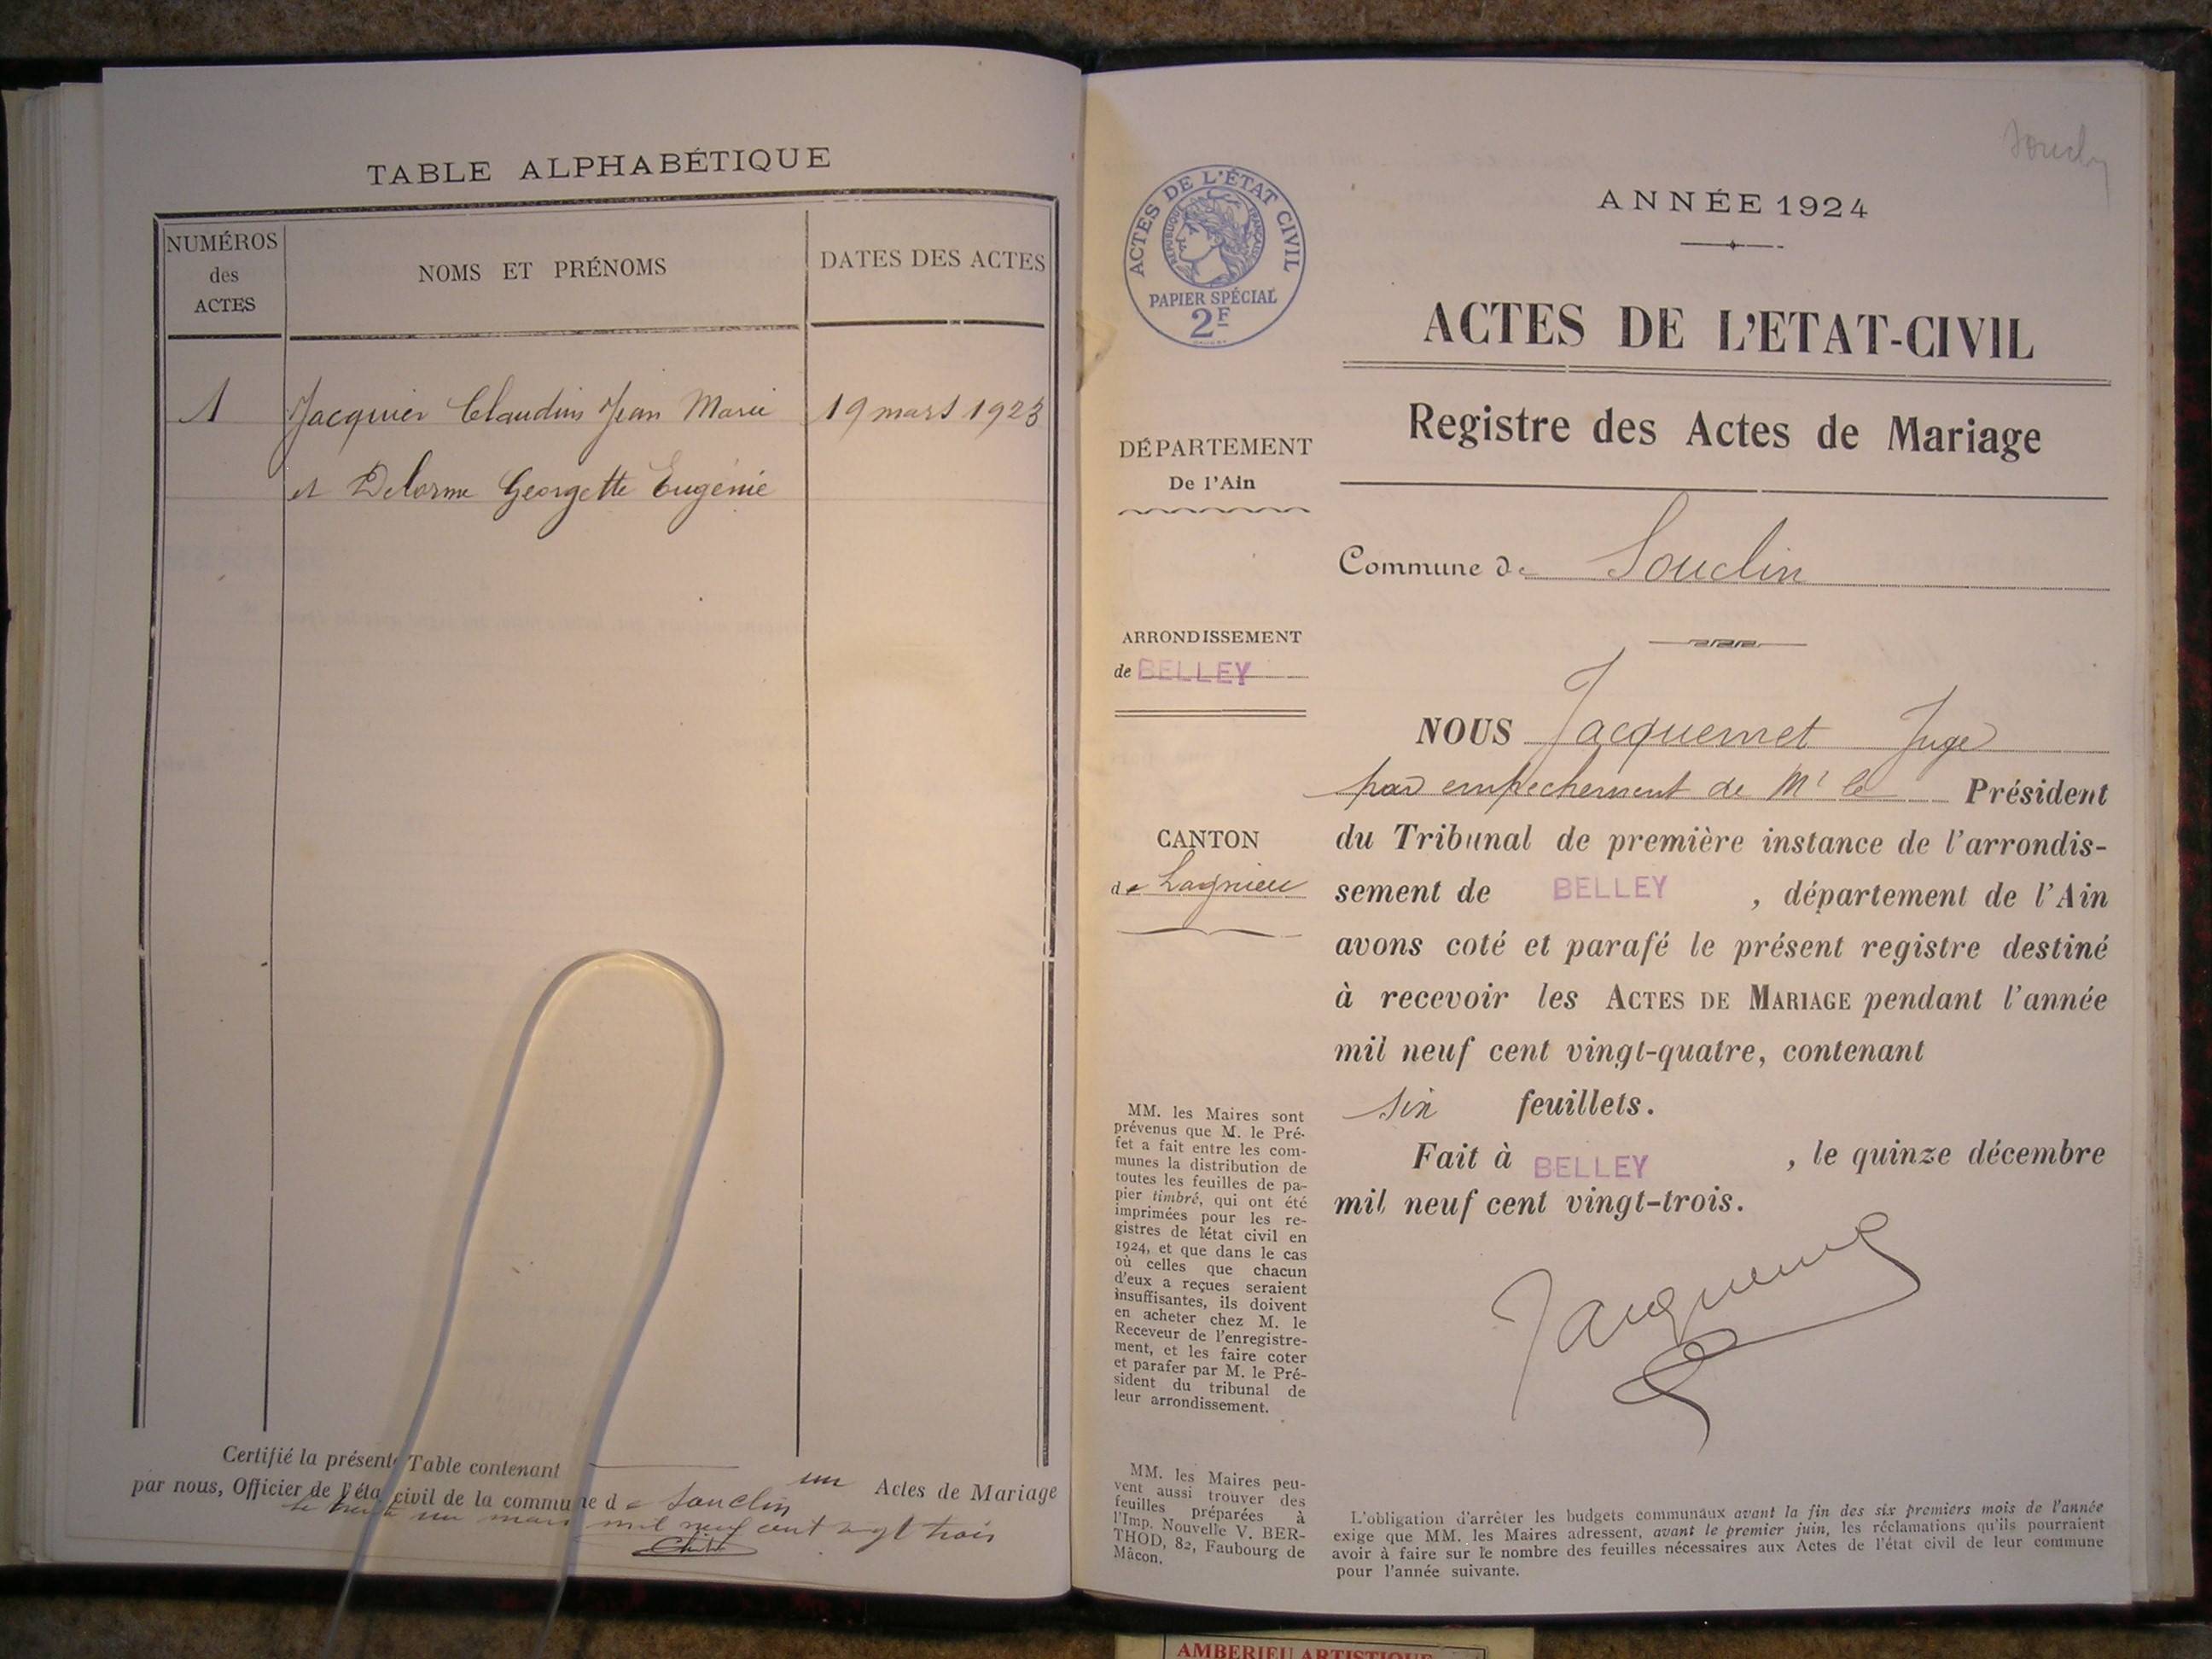 TABLE ALPHABÉTIQUE
NUMÉROS
des
ACTES
NOMS ET PRÉNOMS
DATES DES ACTES
1 Jacquier Claudius Jean Marie 19 mars 1923
et Delorme Georgette Eugénie
Certifié la présente Table contenant
un Actes de Mariage
par nous, Officier de l'état civil de la commune de Souclin
le trente un mars mil neuf cent vingt trois
Souclin
ACTES DE L'ÉTAT CIVIL
RÉPUBLIQUE FRANÇAISE
PAPIER SPÉCIAL
2F
DÉPARTEMENT
De l'Ain
ARRONDISSEMENT
de BELLEY
CANTON
de Lagnieu
MM. les Maires sont
prévenus que M. le Pré-
fet a fait entre les com-
munes la distribution de
toutes les feuilles de pa-
pier timbré, qui ont été
imprimées pour les re-
gistres de l'état civil en
1924, et que dans le cas
où celles que chacun
d'eux a reçues seraient
insuffisantes, ils doivent
en acheter chez M. le
Receveur de l'enregistre-
ment, et les faire coter
et parafer par M. le Pré-
sident du tribunal de
leur arrondissement.
MM. les Maires peu-
vent aussi trouver des
feuilles préparées à
l'Imp. Nouvelle V. BER-
THOD, 82, Faubourg de
Mâcon.
ANNÉE 1924
ACTES DE L'ETAT-CIVIL
Registre des Actes de Mariage
Commune de Souclin
NOUS Jacquemet Juge
par empechement de Mr le Président
du Tribunal de première instance de l'arrondis-
sement de BELLEY, département de l'Ain
avons coté et parafé le présent registre destiné
à recevoir les ACTES DE MARIAGE pendant l'année
mil neuf cent vingt-quatre, contenant
six feuillets.
Fait à BELLEY, le quinze décembre
mil neuf cent vingt-trois.
Jacquemet
L'obligation d'arrêter les budgets communaux avant la fin des six premiers mois de l'année
exige que MM. les Maires adressent, avant le premier juin, les réclamations qu'ils pourraient
avoir à faire sur le nombre des feuilles nécessaires aux Actes de l'état civil de leur commune
pour l'année suivante.
AMBERIEU ARTISTIQUE